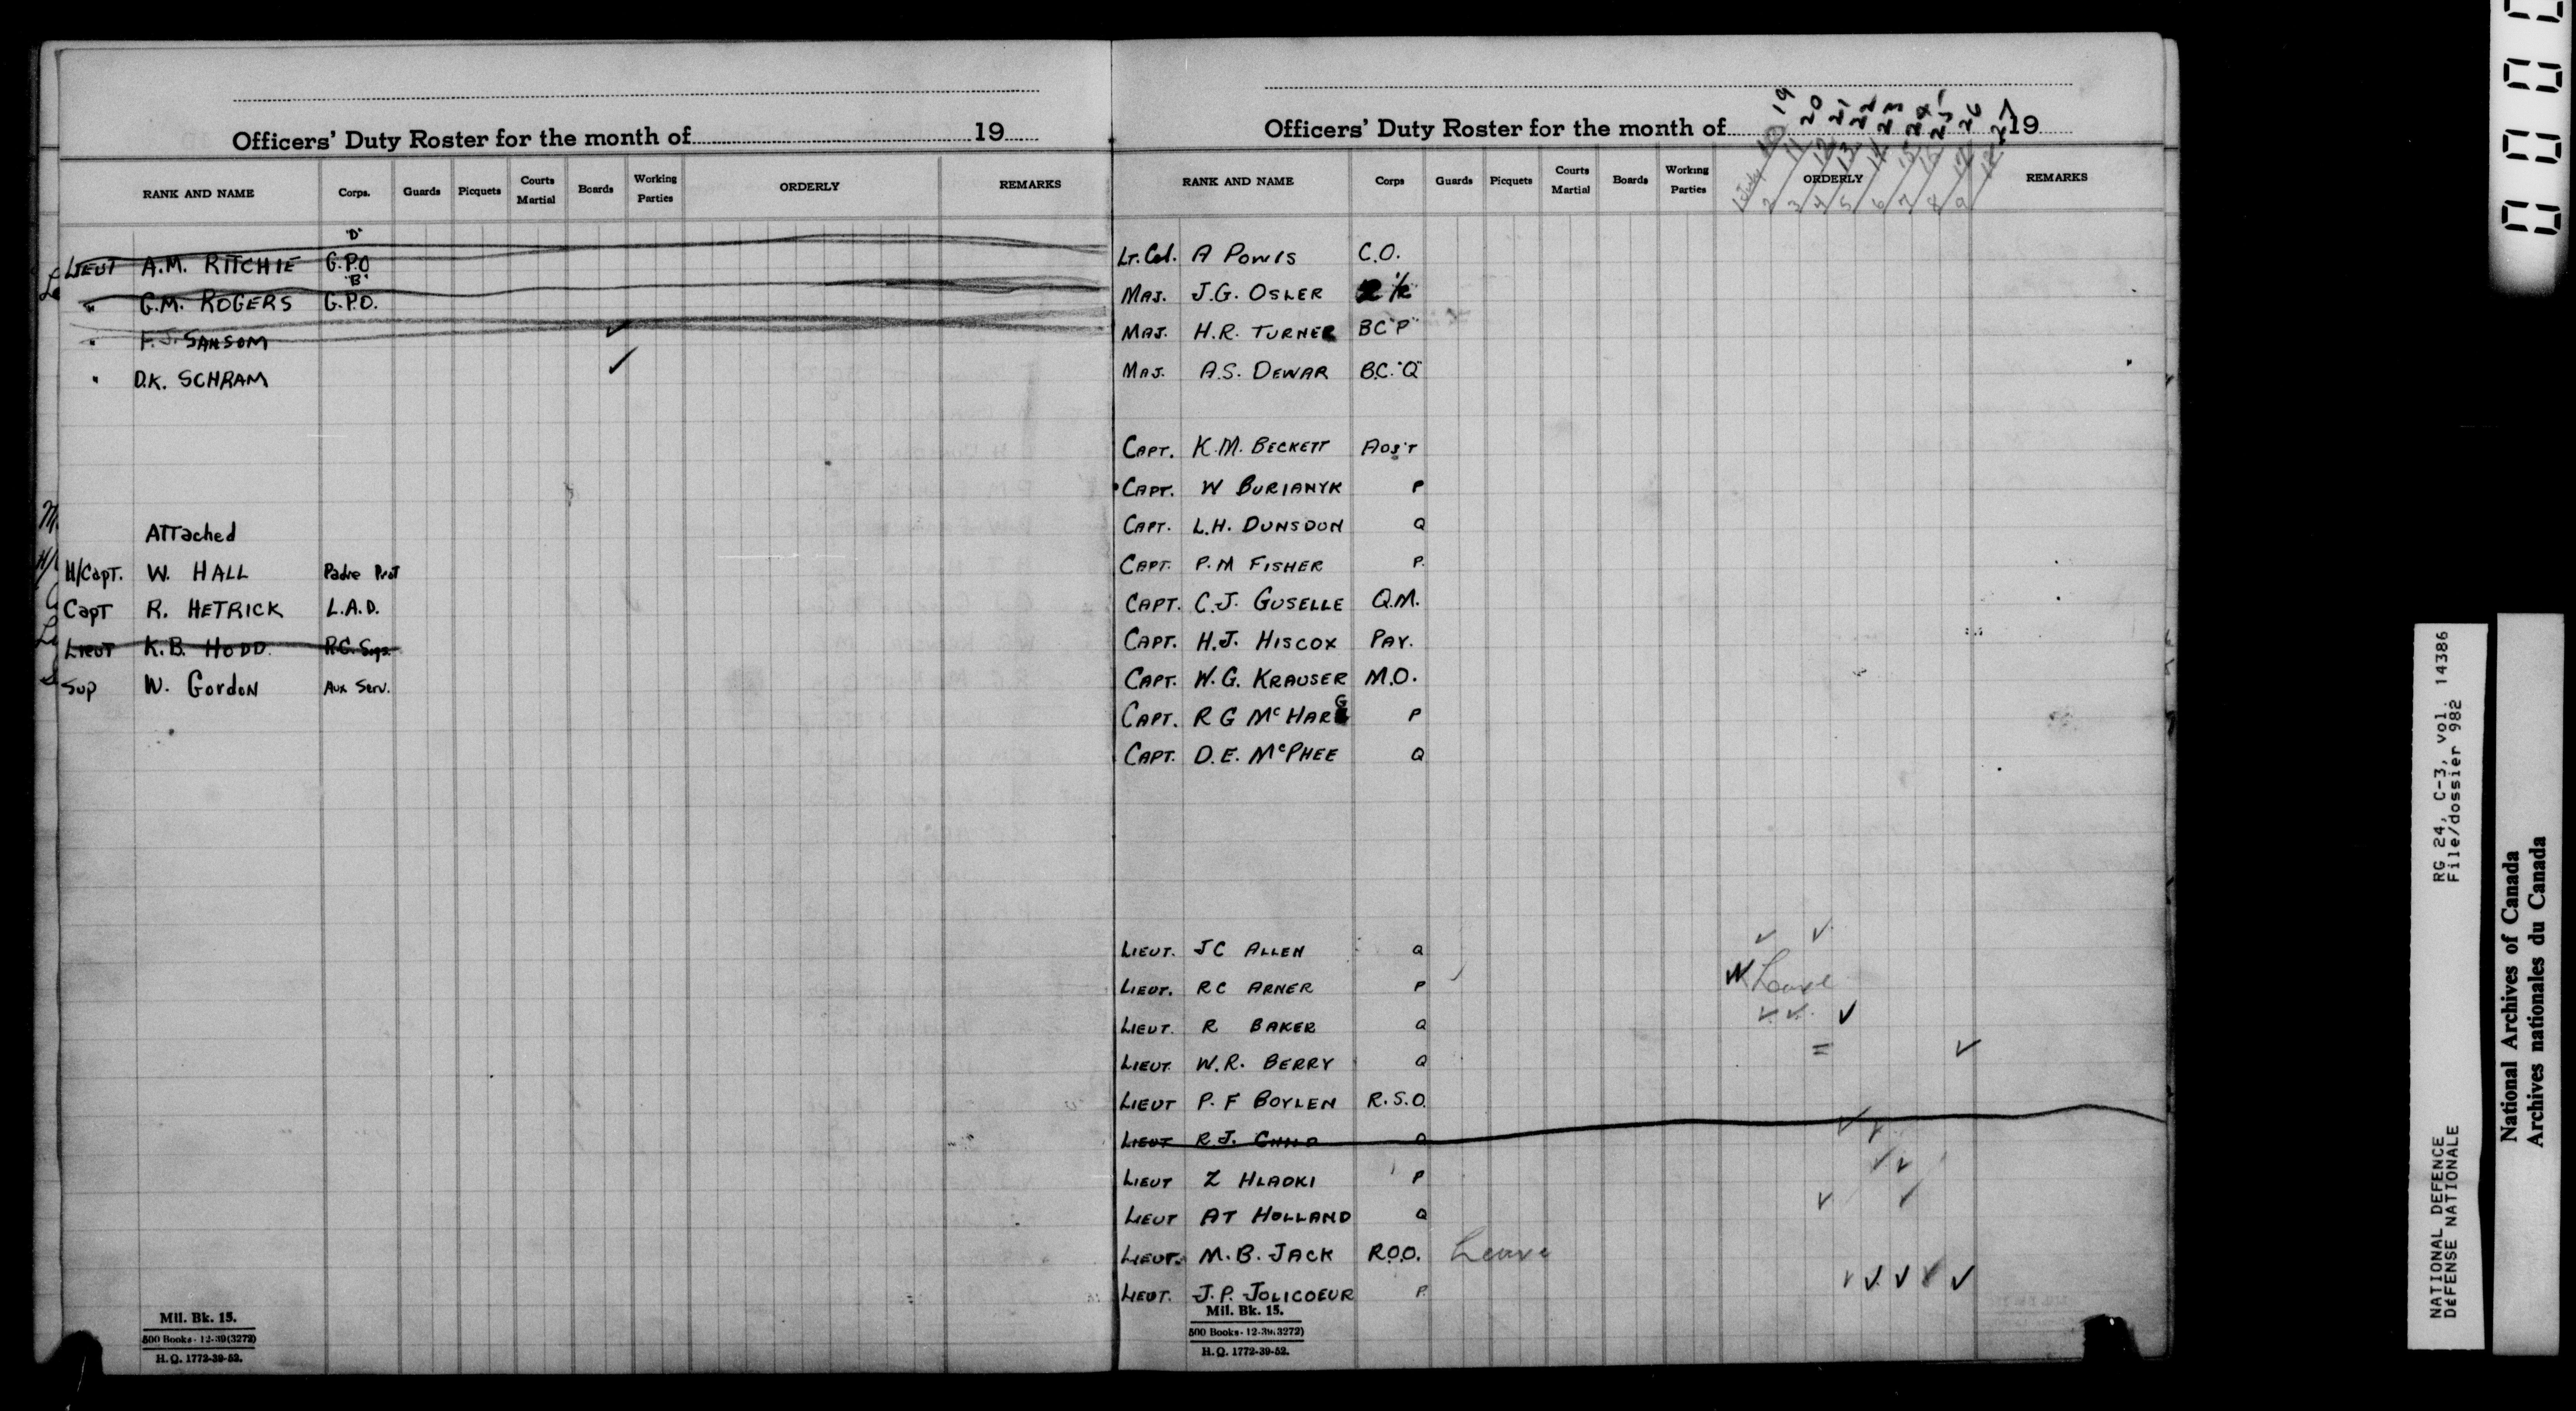 Officers' Duty Roster for the month of 19
RANK AND NAME Corps. Guards Picquets Courts Martial Boards Working Parties ORDERLY REMARKS
"D"
LIEUT A.M. RITCHIE G.P.O
"B"
" G.M. ROGERS G.P.O.
" F.J. SANSOM ✓
" D.K. SCHRAM ✓
ATTached
H/CapT. W. HALL Padre Prot
CapT R. HETRICK L.A.D.
LIEUT K.B. HODD R.C. Sigs.
Sup W. GordoN Aux Serv.
Mil. Bk. 15.
500 Books - 12-39(3272)
H.Q. 1772-39-52.
19 20 21 22 23 24 25 26 27
Officers' Duty Roster for the month of 19
10 11 12 13 14 15 16 17 18
RANK AND NAME Corps Guards Picquets Courts Martial Boards Working Parties ORDERLY REMARKS
1 July 2 3 4 5 6 7 8 9
LT. Col. A POWIS C.O.
MAJ. J.G. OSLER
MAJ. H.R. TURNER BC "P"
MAJ. A.S. DEWAR B.C. "Q"
CAPT. K.M. BECKETT ADJ'T
CAPT. W BURIANYK P
CAPT. L.H. DUNSDON Q
CAPT. P.M FISHER P.
CAPT. C.J. GUSELLE Q.M.
CAPT. H.J. HISCOX PAY.
CAPT. W.G. KRAUSER M.O.
CAPT. R G McHARG P
CAPT. D.E. McPHEE Q
LIEUT. JC ALLEN Q ✓ ✓
LIEUT. RC ARNER P Leave
LIEUT. R BAKER Q ✓ ✓ ✓
LIEUT. W.R. BERRY Q = ✓
LIEUT P.F BOYLEN R.S.O.
LIEUT R.J. CHILD Q ✓ ✓
LIEUT Z HLADKI P ✓ ✓
LIEUT AT HOLLAND Q ✓ ✓
LIEUT. M.B. JACK R.O.O. Leave
LIEUT. J.P. JOLICOEUR P ✓ ✓ ✓ ✓ ✓
Mil. Bk. 15.
500 Books - 12-39(3272)
H.Q. 1772-39-52.
NATIONAL DEFENCE RG 24, C-3, vol. 14386
DÉFENSE NATIONALE File/dossier 982
National Archives of Canada
Archives nationales du Canada